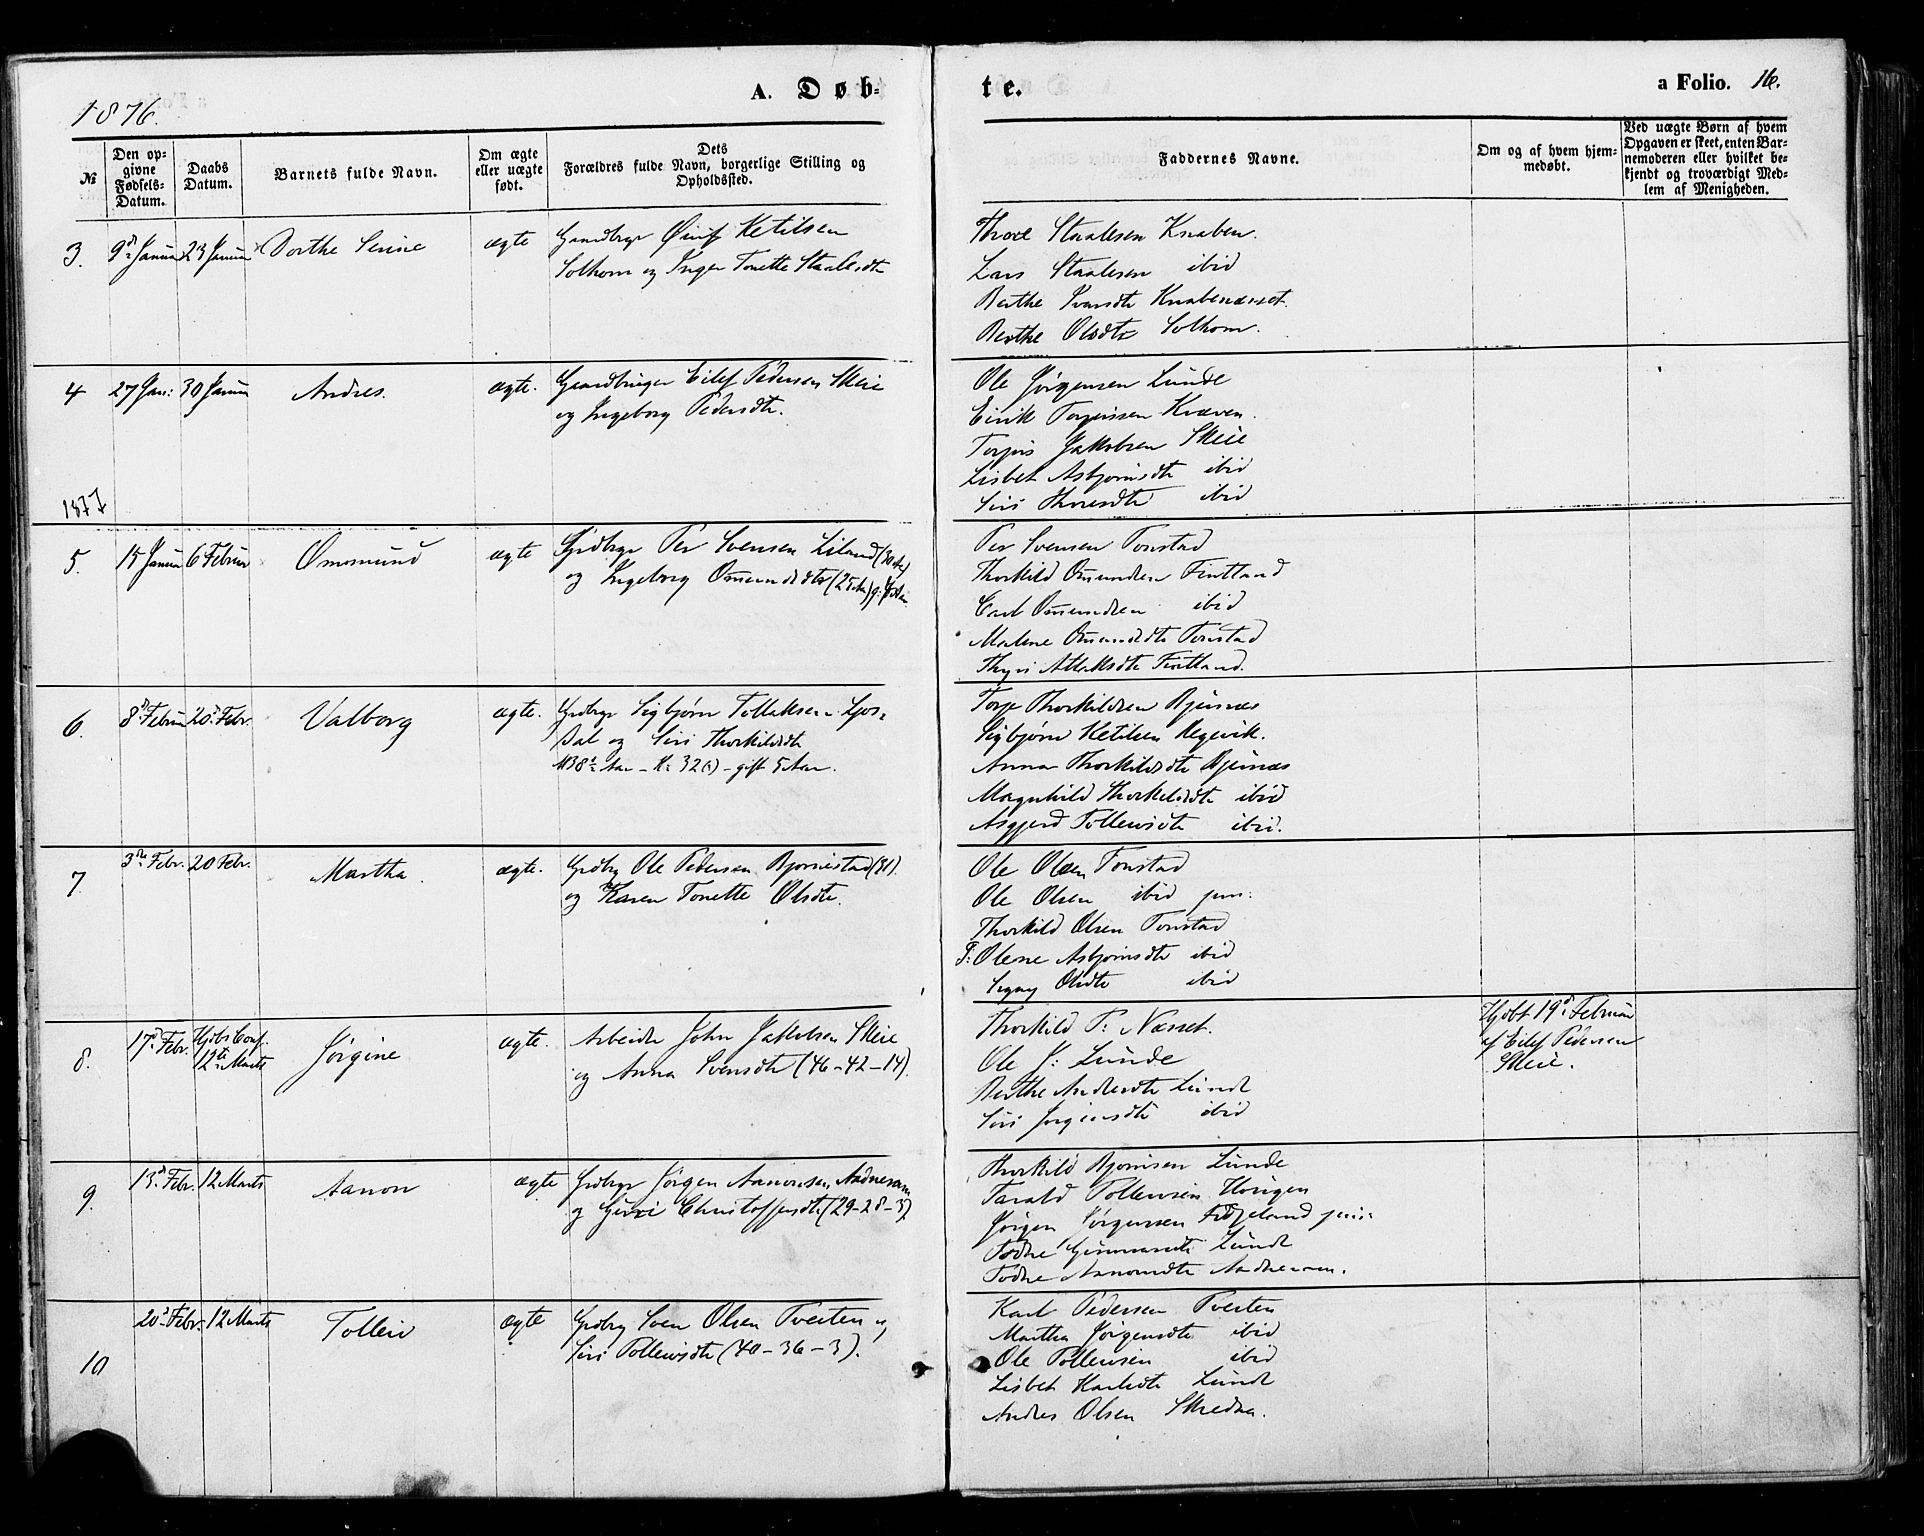 1876.
A. Døb-
te.
a Folio. 16.
№
Den op-
givne
Fødsels-
Datum.
Daabs
Datum.
Barnets fulde Navn.
Om ægte
eller uægte
født.
Dets
Forældres fulde Navn, borgerlige Stilling og
Opholdssted.
Faddernes Navne.
Om og af hvem hjem-
medøbt.
Ved uægte Børn af hvem
Opgaven er skeet, enten Bar-
nemoderen eller hvilket be-
kjendt og troværdigt Med-
lem af Menigheden.
3. 9de Januar 23 Januar Dorthe Serine ægte Gaardbrgr Ketilsen
Solhom og Inger Tonette Staalesdtr
Thore Staalesen Knaben.
Lars Staalesen ibid
Berthe Ivarsdtr Knabenæset.
Berthe Olsdtr Solhom.
4 27 Jan: 30 Januar Andres. ægte. Gaardbruger Eilef Pedersen Skeie
og Ingeborg Pedersdtr.
Ole Jörgensen Lunde
Eirik Torgersen Kvæven.
Torjus Jakobsen Skeie
Lisbet Asbjörnsdtr ibid
Siri Thoresdtr ibid
1877
5. 15 Januar 6 Februar Omomund ægte Grdbrgr Per Svensen Liland (30 Aar)
og Ingeborg Omundsdtr (25 Aar)
Per Svensen Tonstad
Thorkild Omundsen Fintland
Carl Omundsen ibid
Malene Omundsdtr Tonstad
Atlaksdtr Fintland.
6. 8de Februar 20de Febr. Valborg ægte. Grdbrgr Sigbjörn Tollaksen Ljos-
dal og Siri Thorkildsdtr
M 38½ Aar – K: 32 – gift 5 Aar.
Torje Thorkildsen Bjunæs
Sigbjörn Ketilsen Regevik.
Anna Thorkildsdtr Bjunæs
Magnhild Thorkildsdtr ibid
Asgjerd Tollevsdtr ibid.
7 3de Febr. 20 Febr. Martha. ægte. Grdbrg Ole Pedersen Bjørnestad (31).
og Karen Tonette Olsdtr.
Ole Olsen Tonstad
Ole Olsen ibid jun:
Thorkild Olsen Tonstad
P: Olene Asbjörnsdtr ibid
Signy Olsdtr ibid
8. 17de Febr. Hjdbt Conf.
12te Marts Jörgine ægte. Arbeider John Jakobsen Skeie
og Anna Svensdtr (46–42–14).
Thorkild T: Næsset.
Ole J: Lunde
Berthe Andersdtr Lunde
Siri Jörgensdtr ibid
Hjdbt 19de Februar
af Eilef Pedersen
Skeie.
9. 13de Febr. 12 Marts Aanon ægte Grdbrgr Jörgen Aanonsen Aadneram
og Christoffersdtr (29–28–3)
Thorkild Bjørnsen Lunde
Tarald Tollevsen
Jörgen Jörgensen Fidjeland jun:
Todne Gunnarsdtr Lunde
Todne Aanonsdtr Aadneram.
10 20de Febr. 12 Marts Tolleiv ægte Grdbrg Sven Olsen Tveiten og
Siri Tollevsdtr (40–36–3).
Karl Pedersen Tveiten
Martha Jörgensdtr ibid
Ole Tollevsen ibid
Lisbet Karlsdtr Lunde
Andres Olsen Skreaa.